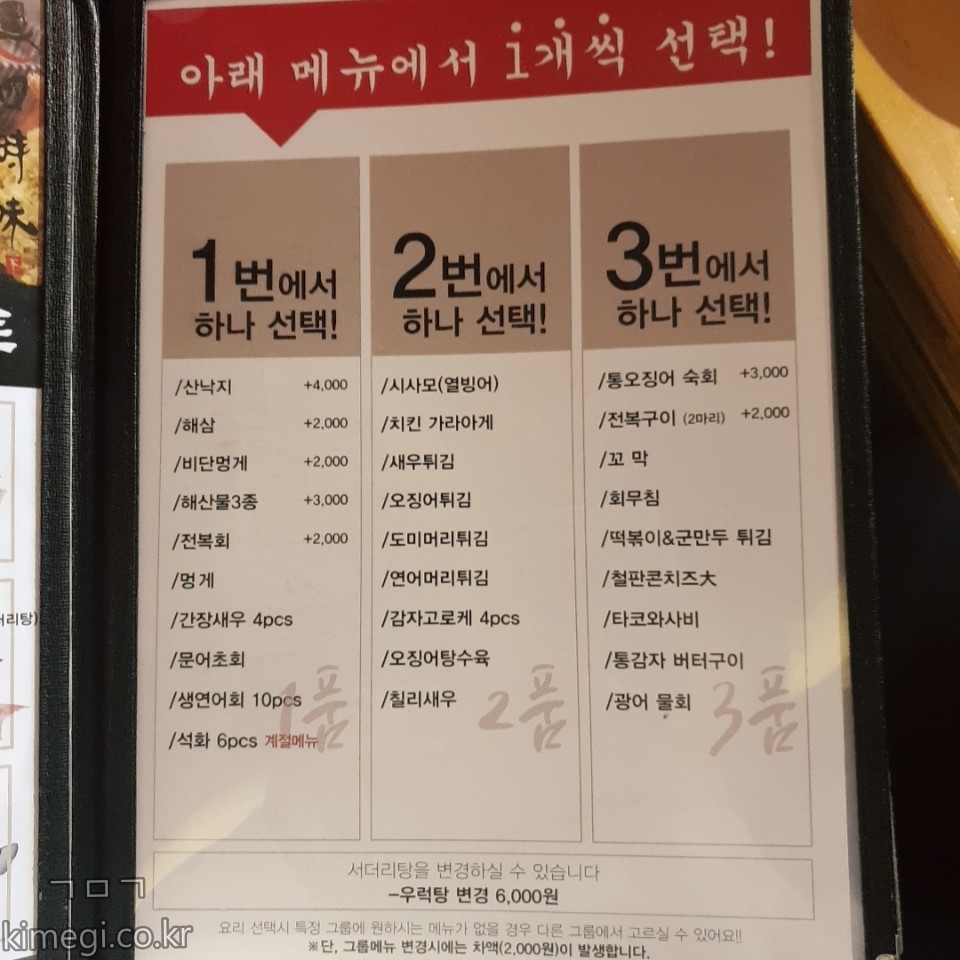 아래 메뉴에서 1개씩 선택!
1번에서
하나 선택!
/산낙지 +4,000
/해삼 +2,000
/비단멍게 +2,000
/해산물3종 +3,000
/전복회 +2,000
/멍게
/간장새우 4pcs
/문어초회
/생연어회 10pcs
/석화 6pcs 계절메뉴
1품
2번에서
하나 선택!
/시사모(열빙어)
/치킨 가라아게
/새우튀김
/오징어튀김
/도미머리튀김
/연어머리튀김
/감자고로케 4pcs
/오징어탕수육
/칠리새우
2품
3번에서
하나 선택!
/통오징어 숙회 +3,000
/전복구이 (2마리) +2,000
/꼬 막
/회무침
/떡볶이&군만두 튀김
/철판콘치즈大
/타코와사비
/통감자 버터구이
/광어 물회
3품
서더리탕을 변경하실 수 있습니다
-우럭탕 변경 6,000원
요리 선택시 특정 그룹에 원하시는 메뉴가 없을 경우 다른 그룹에서 고르실 수 있어요!!
※단, 그룹메뉴 변경시에는 차액(2,000원)이 발생합니다.
味
ㄱㅁㄱ
kimegi.co.kr